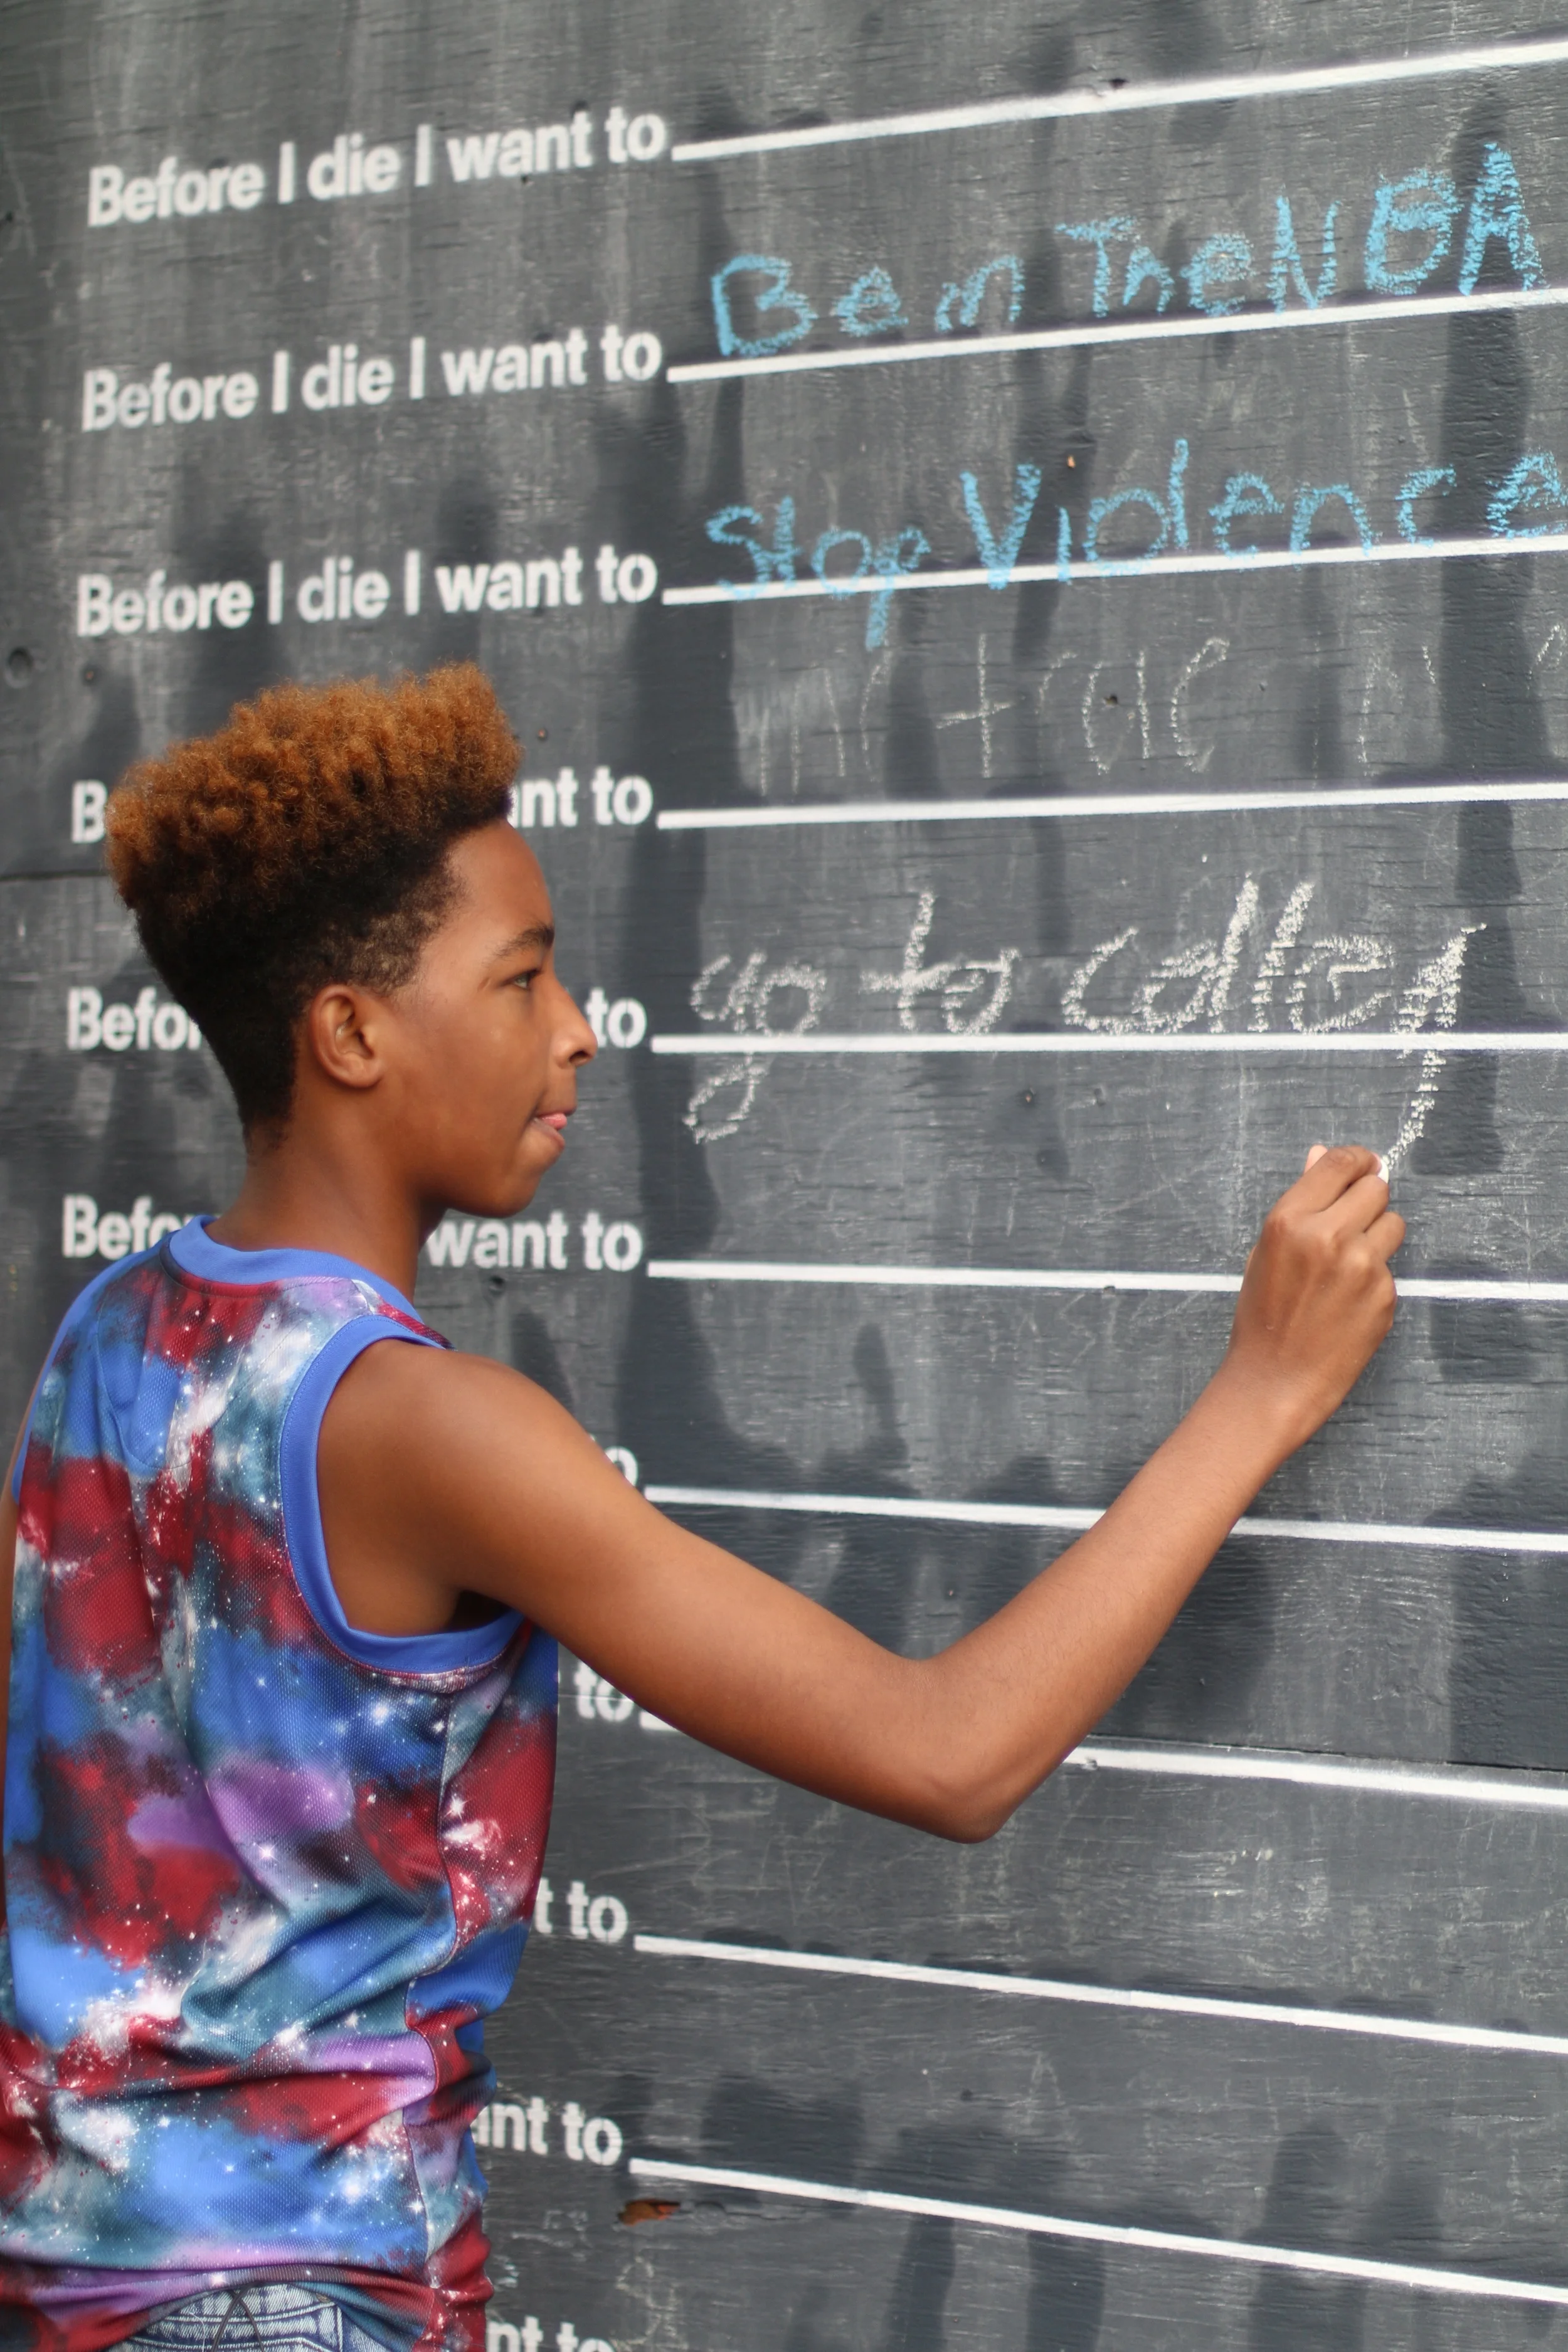 Before I die I want to
Before I die I want to Be in The NBA
Before I die I want to Stop Violence
B nt to
Befor to go to colleg
Befo want to
o
to
t to
ant to
nt to